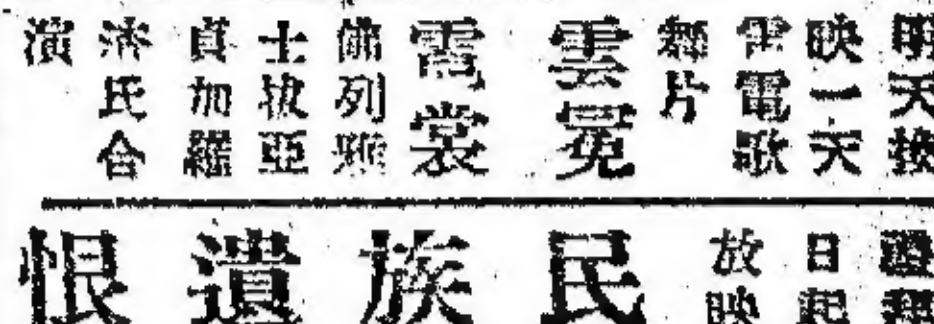 明天換
映一天
雷電歌
舞片
雲冕
霓裳
佛列雅
士拔亞
真加羅
濟氏合
演
日起
放映
民族遺恨